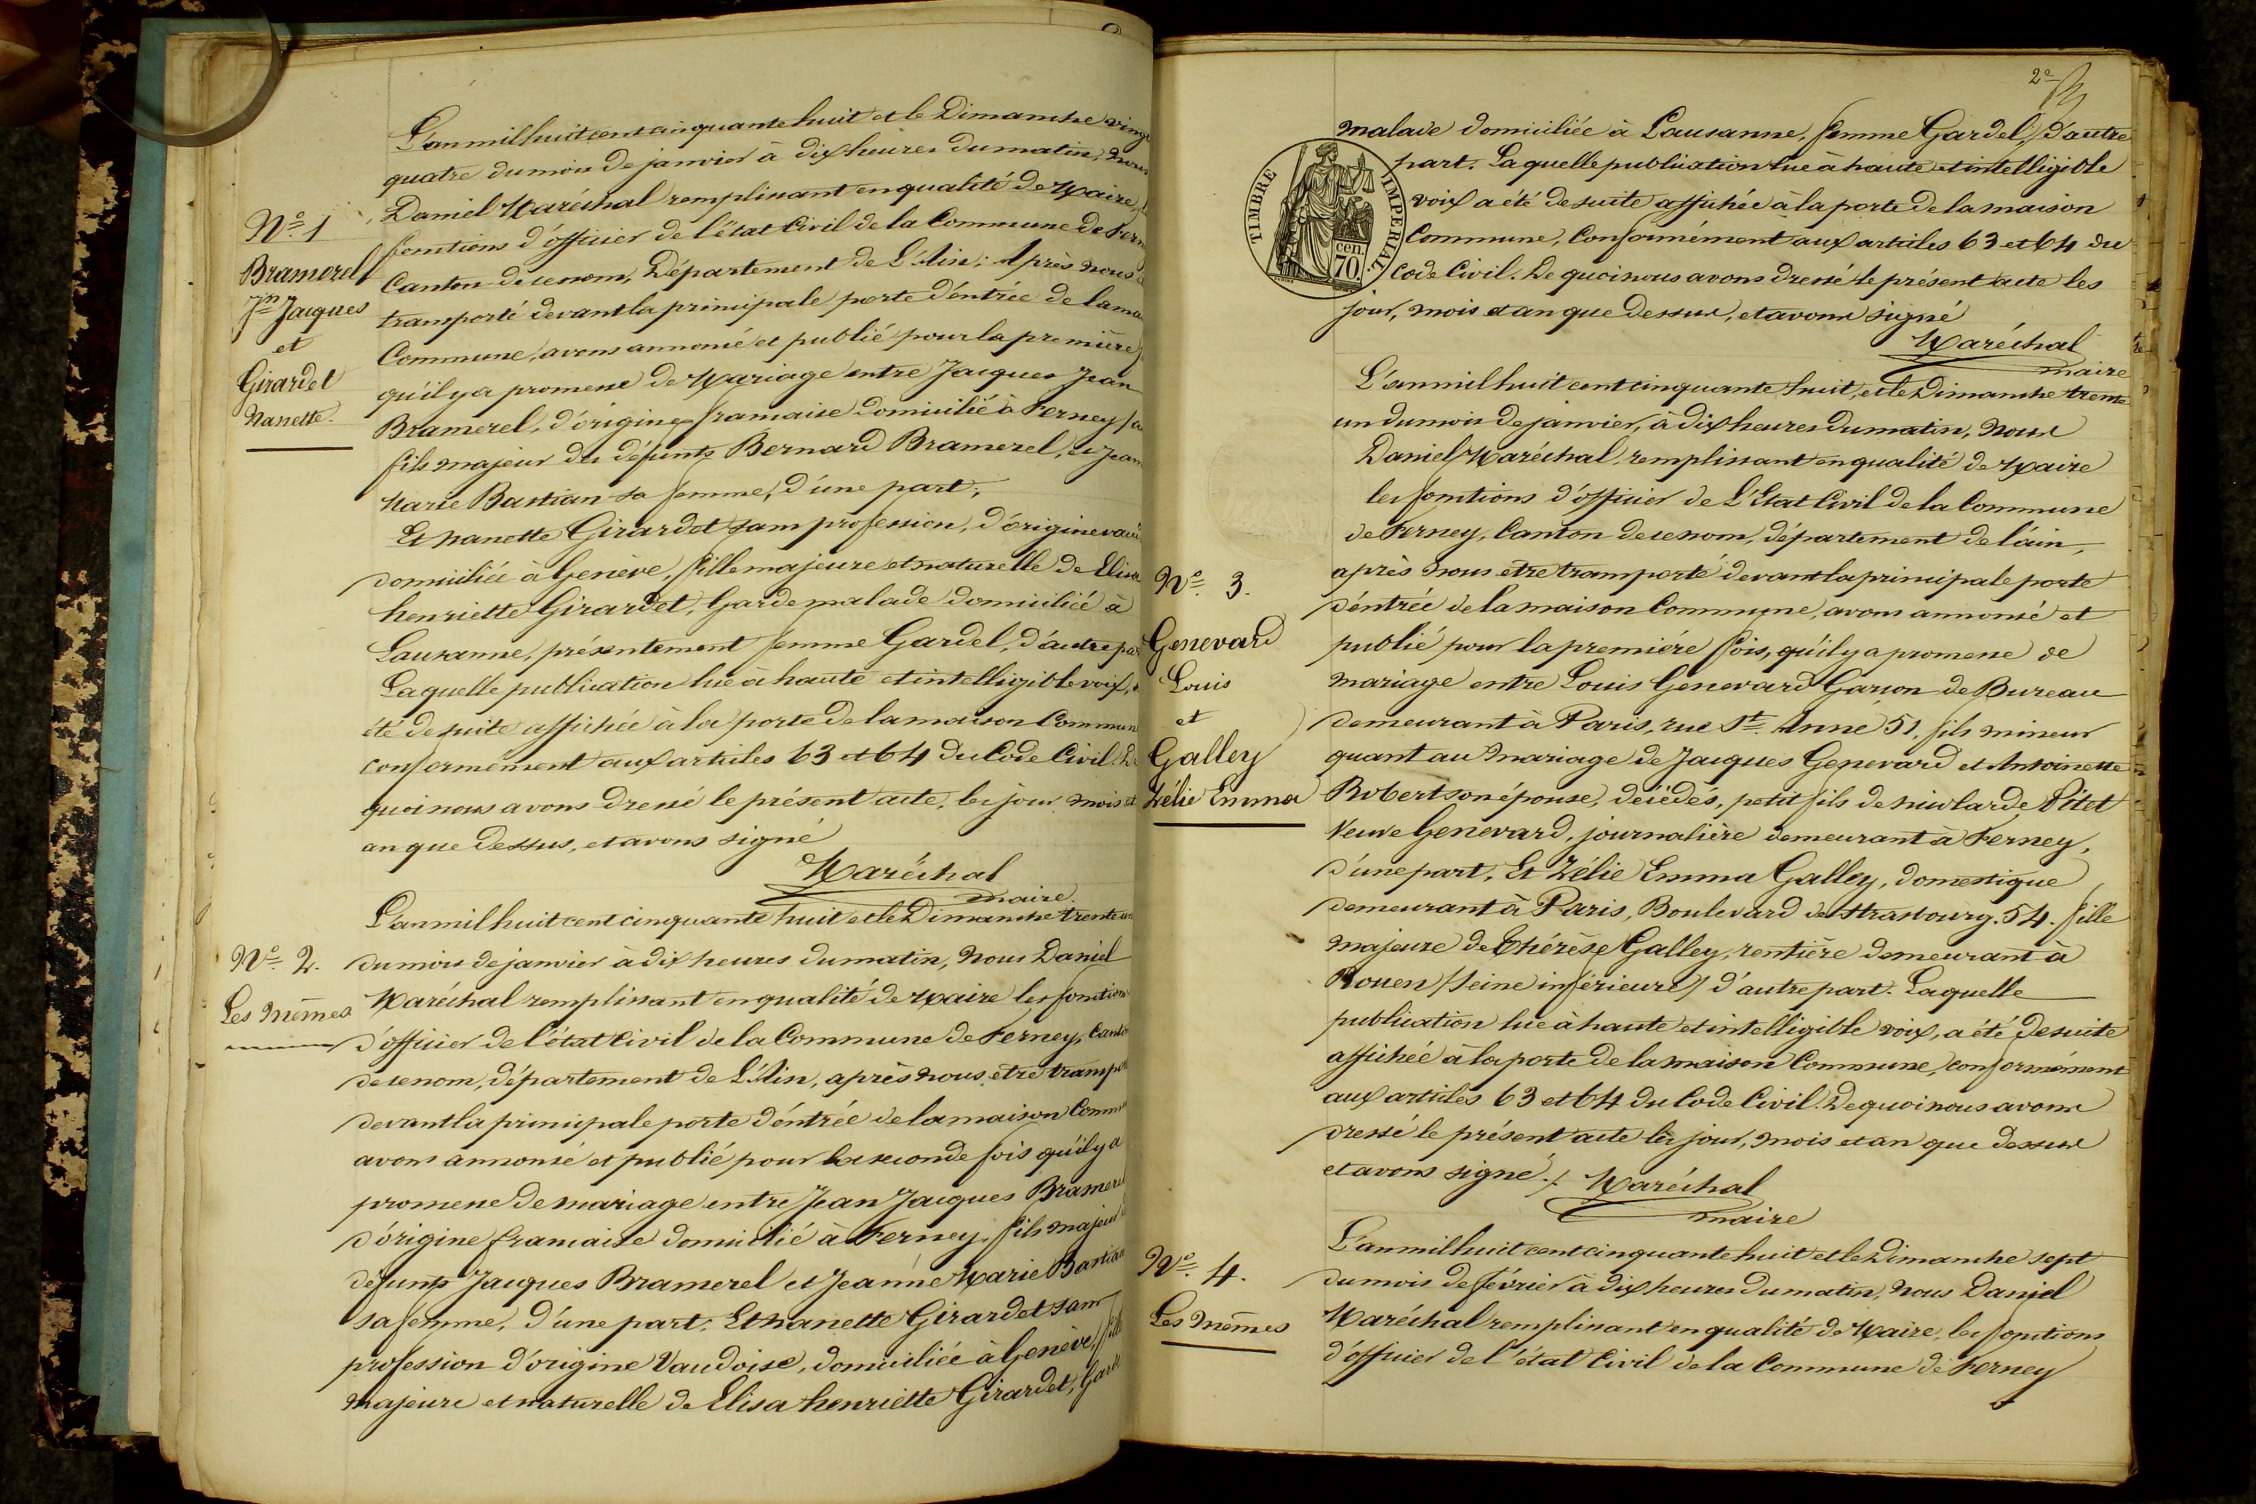 L'an mil huit cent cinquante huit et le Dimanche vingt
quatre du mois de janvier à dix heures du matin, nous
Daniel Maréchal remplissant en qualité de Maire, l
fonctions d'officier de l'état Civil de la Commune de Fern
Canton de ce nom, Département de L'Ain; Après nous ê
transporté devant la principale porte d'éntrée de la ma
Commune, avons annoncé et publié pour la première
qu'il y a promesse de Mariage entre Jacques Jean
Bramerel, d'origine francaise domicilié à Ferney
fils majeur des défunts Bernard Bramerel, et Jean
Marie Bastian sa femme, d'une part;
Et Nanette Girardet sans profession, d'origine vau
domiciliée à Genève, fille majeure et naturelle de Elisa
henriette Girardet, Garde malade domiciliée à
Lausanne, présentement femme Gardel, d'autre pa
Laquelle publication lue à haute et intelligible voix, a
été de suite affichée à la porte de la maison Commun
conformément aux articles 63 et 64 du Code Civil. De
quoi nous avons dressé le présent acte, les jour mois et
an que dessus, et avons signé
Maréchal
maire.
N° 1
Bramerel
Jn Jacques
et
Girardet
Nanette.
L'an mil huit cent cinquante huit et le Dimanche trente un
du mois de janvier à dix heures du matin, Nous Daniel
Maréchal remplissant en qualité de Maire les fonctions
d'officier de l'état Civil de la Commune de Ferney, Canto
de ce nom, département de L'Ain, après nous être transpor
devant la principale porte d'éntrée de la maison Commu
avons annoncé et publié pour la seconde fois qu'il y a
promesse de mariage entre Jean Jacques Bramerel
d'origine francaise domicilié à Ferney, fils majeur
défunts Jacques Bramerel et Jeanne Marie Bastian
sa femme, d'une part. Et nanette Girardet sans
profession d'origine Vaudoise, domiciliée à Genève, fille
majeure et naturelle de Elisa henriette Girardet, Garde
N° 2.
Les mêmes
2e
malade domiciliée à Lausanne, femme Gardel, d'autre
part. Laquelle publication lue à haute et intelligible
voix a été de suite affichée à la porte de la maison
Commune, Conformément aux articles 63 et 64 du
Code Civil. De quoi nous avons dressé le présent acte les
jour, mois et an que dessus, et avons signé
Maréchal
maire
TIMBRE IMPERIAL.
70 cen
L'an mil huit cent cinquante huit, et le Dimanche trente
un du mois de janvier, à dix heures du matin, Nous
Daniel Maréchal, remplissant en qualité de Maire
les fonctions d'officier de L'Etat Civil de la Commune
de Ferney, Canton de ce nom, département de l'ain,
après nous etre transporté devant la principale porte
d'éntrée de la maison Commune, avons annoncé et
publié pour la première fois, qu'il y a promesse de
mariage entre Louis Genevard Garcon de Bureau
demeurant à Paris, rue St. Anne 51, fils mineur
quant au Mariage de Jacques Genevard et Antoinette
Robert son épouse, décédés, petit fils de nicolarde Pitet
Veuve Genevard, journalière demeurant à Ferney,
d'une part, Et Zélie Emma Galley, domestique
demeurant à Paris, Boulevard de Strasbourg. 54. fille
majeure de Thérèse Galley, rentière demeurant à
Rouen (Seine inférieure) d'autre part. Laquelle
publication lue à haute et intelligible voix, a été de suite
affichée à la porte de la maison Commune, conformément
aux articles 63 et 64 du Code Civil. De quoi nous avons
dressé le présent acte les jour, mois et an que dessus
et avons signé./. Maréchal
maire
N° 3.
Genevard
Louis
et
Galley
Zélie Emma
L'an mil huit cent cinquante huit et le Dimanche sept
du mois de février à dix heures du matin, Nous Daniel
Maréchal remplissant en qualité de Maire, les fonctions
d'officier de l'état Civil de la Commune de Ferney
N° 4.
Les mêmes